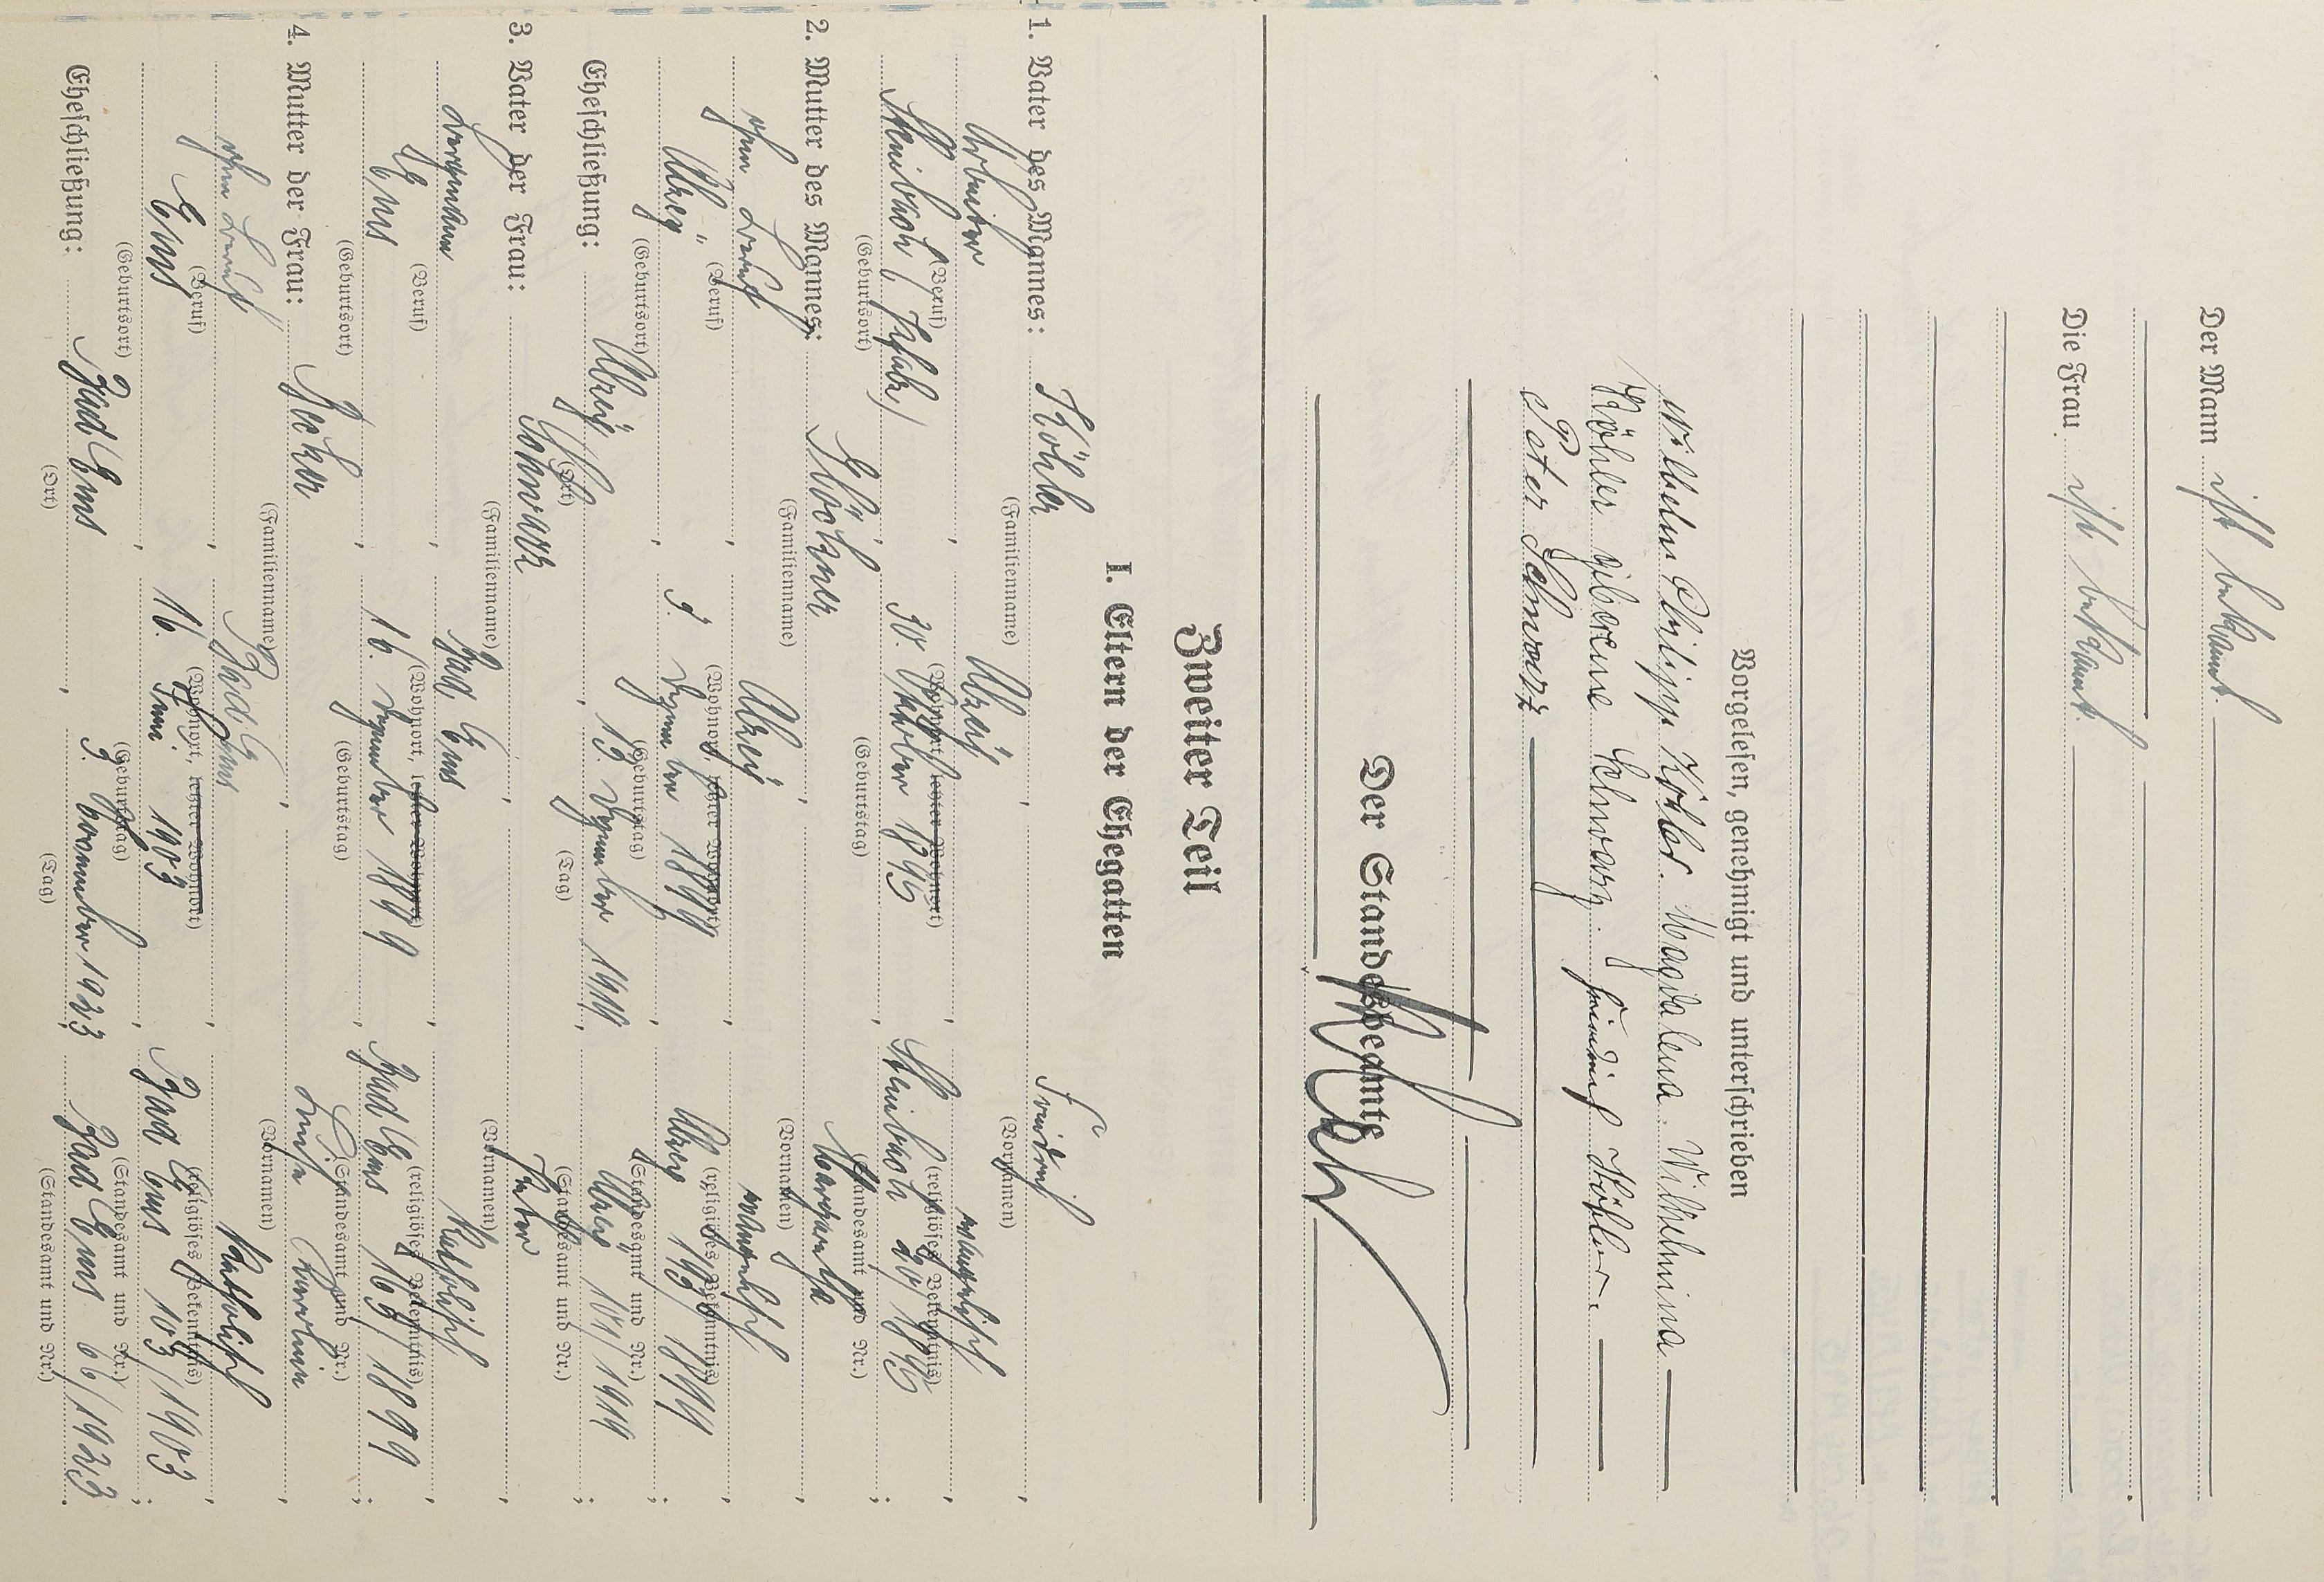 Der Mann ist bekannt.
Die Frau ist bekannt.
Vorgelesen, genehmigt und unterschrieben
Wilhelm Philipp Köhler. Magdalena. Wilhelmina
Köhler geborene Schwarz. Friedrich Köhler.
Peter Schwarz
Der Standesbeamte
Zweiter Teil
I. Eltern der Ehegatten
1. Vater des Mannes: Köhler, Friedrich,
(Familienname) (Vornamen)
Arbeiter, Alzey, evangelisch,
(Beruf) (Wohnort, letzter Wohnort) (religiöses Bekenntnis)
Steinbach (Pfalz), 30. Oktober 1895, Steinbach 20/1895;
(Geburtsort) (Geburtstag) (Standesamt und Nr.)
2. Mutter des Mannes: Glöckner, Margaretha,
(Familienname) (Vornamen)
ohne Beruf, Alzey, evangelisch,
(Beruf) (Wohnort, letzter Wohnort) (religiöses Bekenntnis)
Alzey, 9. Dezember 1899, Alzey 193/1899;
(Geburtsort) (Geburtstag) (Standesamt und Nr.)
Eheschließung: Alzey, 13. Dezember 1919, Alzey 101/1919;
(Ort) (Tag) (Standesamt und Nr.)
3. Vater der Frau: Schwarz, Peter,
(Familienname) (Vornamen)
Bergmann, Bad Ems, katholisch,
(Beruf) (Wohnort, letzter Wohnort) (religiöses Bekenntnis)
Ems, 16. Dezember 1899, Bad Ems 163/1899;
(Geburtsort) (Geburtstag) (Standesamt und Nr.)
4. Mutter der Frau: Becker, Luise Karoline,
(Familienname) (Vornamen)
ohne Beruf, Bad Ems, katholisch,
(Beruf) (Wohnort, letzter Wohnort) (religiöses Bekenntnis)
Ems, 16. Juni 1903, Bad Ems 103/1903;
(Geburtsort) (Geburtstag) (Standesamt und Nr.)
Eheschließung: Bad Ems, 9. November 1923, Bad Ems 66/1923.
(Ort) (Tag) (Standesamt und Nr.)